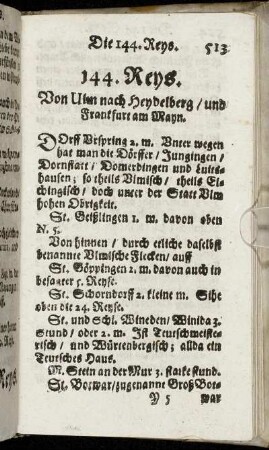 Die 144. Reys. 513
144. Reys.
Von Ulm nach Heydelberg / und
Franckfurt am Mayn.
DOrff Vrspring 2. m. Unter wegen
hat man die Dörffer / Jungingen /
Dornstatt / Domerdingen und Luits-
hausen; so theils Vlmisch / theils El-
chingisch / doch unter der Statt Vlm
hohen Obrigkeit.
St. Geißlingen 1. m. davon oben
N. 5.
Von hinnen / durch etliche daselbst
benannte Vlmische Flecken / auff
St. Göppingen 2. m. davon auch in
besagter 5. Reyse.
St. Schorndorff 2. kleine m. Sihe
oben die 24. Reyse.
St. und Schl. Wineden / Winida 3.
stund / oder 2. m. Ist Teutschmeiste-
risch / und Würtenbergisch; allda ein
Teutsches Haus.
M. Stein an der Mur 3. starke stund.
St. Botwar / zugenannt Groß Bot-
Y 5 war